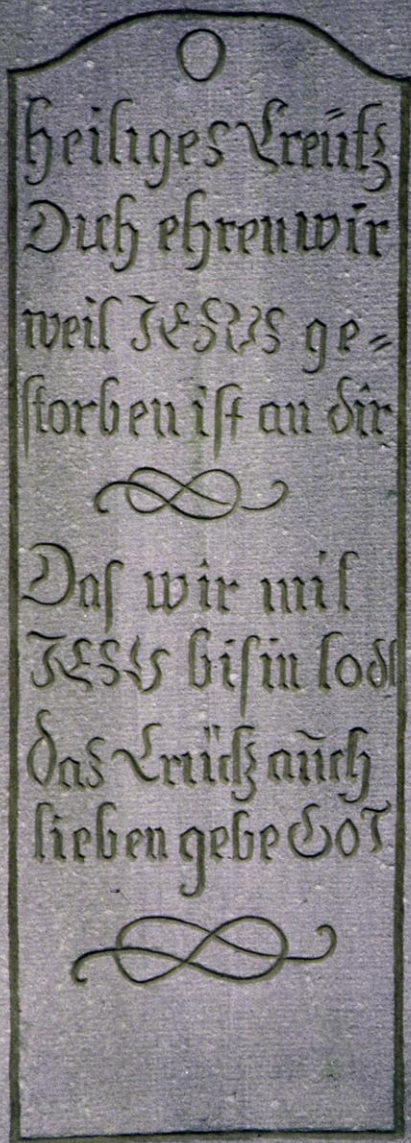 O
heiliges Creütz
Dich ehren wir
weil JESUS ge=
storben ist an dir
Das wir mit
JESU bis in todt
das Crütz auch
lieben gebe GOT